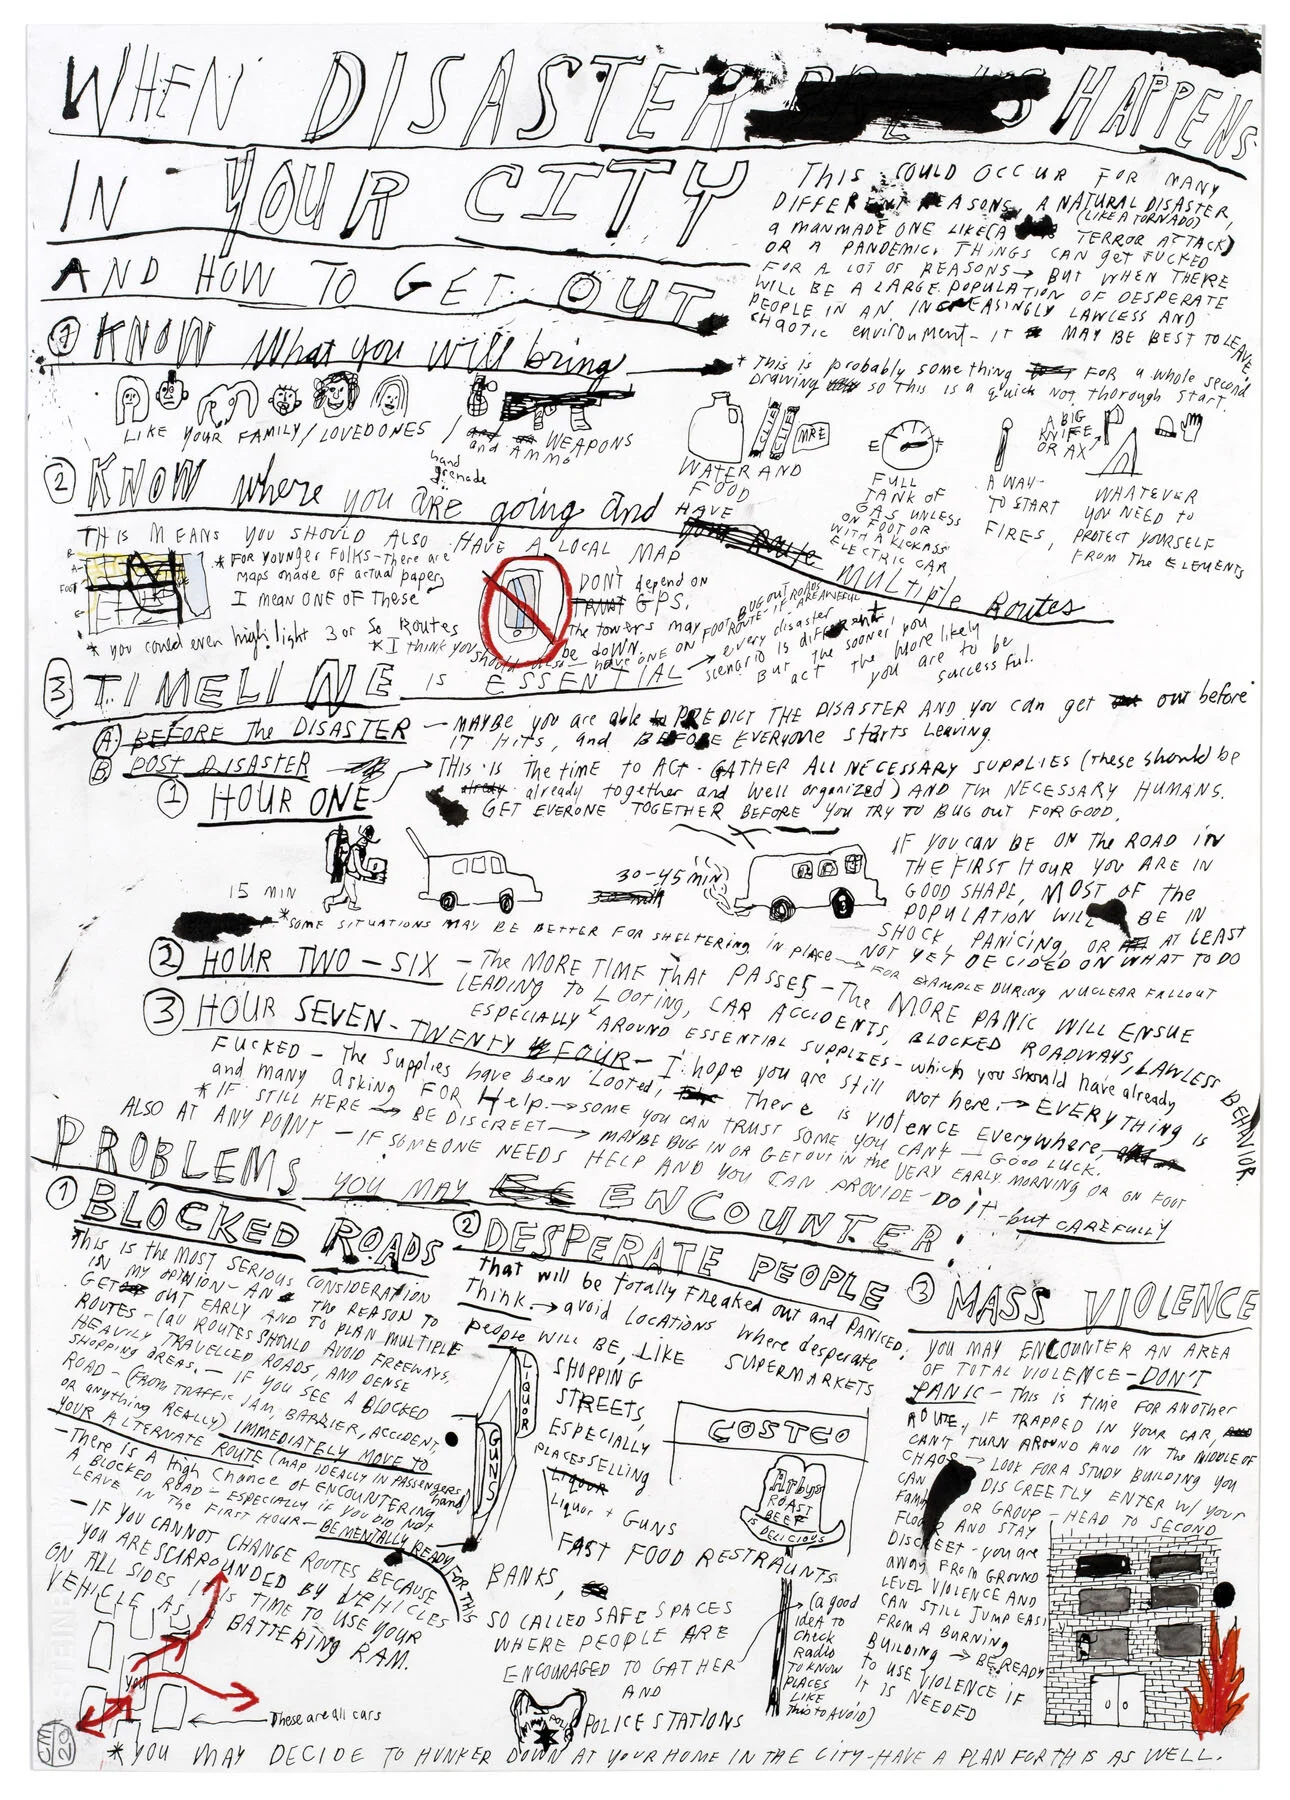 WHEN DISASTER HAPPENS
IN YOUR CITY
AND HOW TO GET OUT.
THIS COULD OCCUR FOR MANY
DIFFERENT REASONS, A NATURAL DISASTER,
(LIKE A TORNADO)
a MANMADE ONE LIKE (A TERROR ATTACK)
OR A PANDEMIC. THINGS CAN get FUCKED
FOR A LOT OF REASONS → BUT WHEN THERE
WILL BE A LARGE POPULATION OF DESPERATE
PEOPLE IN AN INCREASINGLY LAWLESS AND
CHAOTIC environment - IT MAY BE BEST TO LEAVE.
① KNOW What you will bring
* This is probably something FOR a whole second
Drawing so This is a quick not thorough start.
LIKE YOUR FAMILY/LOVED ONES / WEAPONS
and AMMO
hand
grenade
MRE
WATER AND
FOOD
E F
FULL
TANK OF
GAS UNLESS
ON FOOT OR
WITH A KICKASS
ELECTRIC CAR
A WAY
TO START
FIRES,
A BIG
KNIFE
OR AX
WHATEVER
YOU NEED to
PROTECT YOURSELF
FROM THE ELEMENTS
② KNOW where you are going and HAVE
MULTIPLE Routes
THIS MEANS YOU SHOULD ALSO HAVE A LOCAL MAP
* FOR younger FOLKS - there are
maps made of actual paper
I mean ONE OF These
* you could even highlight 3 or So Routes
* I think you should also have ONE ON FOOT ROUTE - IF BUG OUT ROADS ARE AWFUL
DON'T depend on
GPS.
The towers may
be down.
③ TIMELINE IS ESSENTIAL
→ every disaster
scenario is different
But the sooner you
act the more likely
you are to be
successful.
Ⓐ BEFORE the DISASTER - MAYBE you are able to PREDICT THE DISASTER AND you can get out before
IT HITS, and BEFORE EVERYONE starts Leaving.
Ⓑ POST DISASTER
① HOUR ONE
→ THIS IS The time to ACT - GATHER ALL NECESSARY SUPPLIES (These should be
already together and well organized) AND The NECESSARY HUMANS.
GET EVERONE TOGETHER BEFORE YOU TRY TO BUG OUT FOR GOOD.
15 MIN
30-45 min
IF YOU CAN BE ON the ROAD IN
THE FIRST HOUR YOU ARE IN
GOOD SHAPE, MOST OF the
POPULATION WILL BE IN
SHOCK, PANICING, OR AT LEAST
NOT YET DECIDED ON WHAT TO DO
* SOME SITUATIONS MAY BE BETTER FOR SHELTERING IN place → FOR EXAMPLE DURING NUCLEAR FALLOUT
② HOUR TWO - SIX - The MORE TIME THAT PASSES - The MORE PANIC WILL ENSUE
LEADING to LOOTING, CAR ACCIDENTS, BLOCKED ROADWAYS, LAWLESS BEHAVIOR
ESPECIALLY AROUND ESSENTIAL SUPPLIES - which you should have already
③ HOUR SEVEN - TWENTY FOUR - I hope you are still not here. → EVERYTHING IS
FUCKED - The supplies have been Looted, There is violence Everywhere,
and many asking FOR Help. → SOME YOU CAN TRUST SOME YOU CAN'T - GOOD LUCK.
* IF STILL HERE → BE DISCREET → MAYBE BUG IN OR GET OUT IN the VERY EARLY MORNING OR ON FOOT
ALSO AT ANY POINT - IF SOMEONE NEEDS HELP AND YOU CAN PROVIDE - DO IT - but CAREFULLY
PROBLEMS YOU MAY ENCOUNTER:
① BLOCKED ROADS
This is the MOST SERIOUS CONSIDERATION
IN MY OPINION - AND the REASON TO
GET OUT EARLY AND TO PLAN MULTIPLE
ROUTES - (all ROUTES SHOULD AVOID FREEWAYS,
HEAVILY TRAVELLED ROADS, AND DENSE
SHOPPING AREAS. - IF YOU SEE A BLOCKED
ROAD - (FROM TRAFFIC JAM, BARRIER, ACCIDENT,
or anything REALLY) IMMEDIATELY MOVE TO
YOUR ALTERNATE ROUTE (MAP IDEALLY IN PASSENGERS hand)
- THERE IS A High Chance OF ENCOUNTERING
A BLOCKED ROAD - ESPECIALLY IF YOU DID NOT
LEAVE IN THE FIRST HOUR - BE MENTALLY READY FOR THIS
- IF YOU CANNOT CHANGE ROUTES BECAUSE
YOU ARE SURROUNDED BY VEHICLES
ON ALL SIDES IT IS TIME TO USE YOUR
VEHICLE AS A BATTERING RAM.
you
These are all cars
② DESPERATE PEOPLE
that will be totally Freaked out and PANICED.
Think → avoid LOCATIONS where desperate
people WILL BE, LIKE SUPERMARKETS
SHOPPING
STREETS,
ESPECIALLY
PLACES SELLING
Liquor + GUNS
LIQUOR
GUNS
COSTCO
Arby's
ROAST
BEEF
IS DELICIOUS
FAST FOOD RESTRAUNTS
BANKS,
SO CALLED SAFE SPACES
WHERE PEOPLE ARE
ENCOURAGED TO GATHER
AND
POLICE STATIONS
(a good
idea to
check
Radio
TO KNOW
PLACES
LIKE
This to AVOID)
③ MASS VIOLENCE
YOU MAY ENCOUNTER AN AREA
OF TOTAL VIOLENCE - DON'T
PANIC - This is time FOR ANOTHER
ROUTE, IF TRAPPED IN YOUR CAR,
CAN'T TURN AROUND AND IN the MIDDLE OF
CHAOS → LOOK FOR A STUDY BUILDING YOU
CAN DISCREETLY ENTER w/ YOUR
Family OR GROUP - HEAD TO SECOND
FLOOR AND STAY
DISCREET - you are
away From GROUND
LEVEL VIOLENCE AND
CAN STILL JUMP EASI
FROM A BURNING
BUILDING → BE READY
TO USE VIOLENCE IF
IT IS NEEDED
JM
20
* YOU MAY DECIDE TO HUNKER DOWN AT YOUR HOME IN THE CITY - HAVE A PLAN FOR THIS AS WELL.